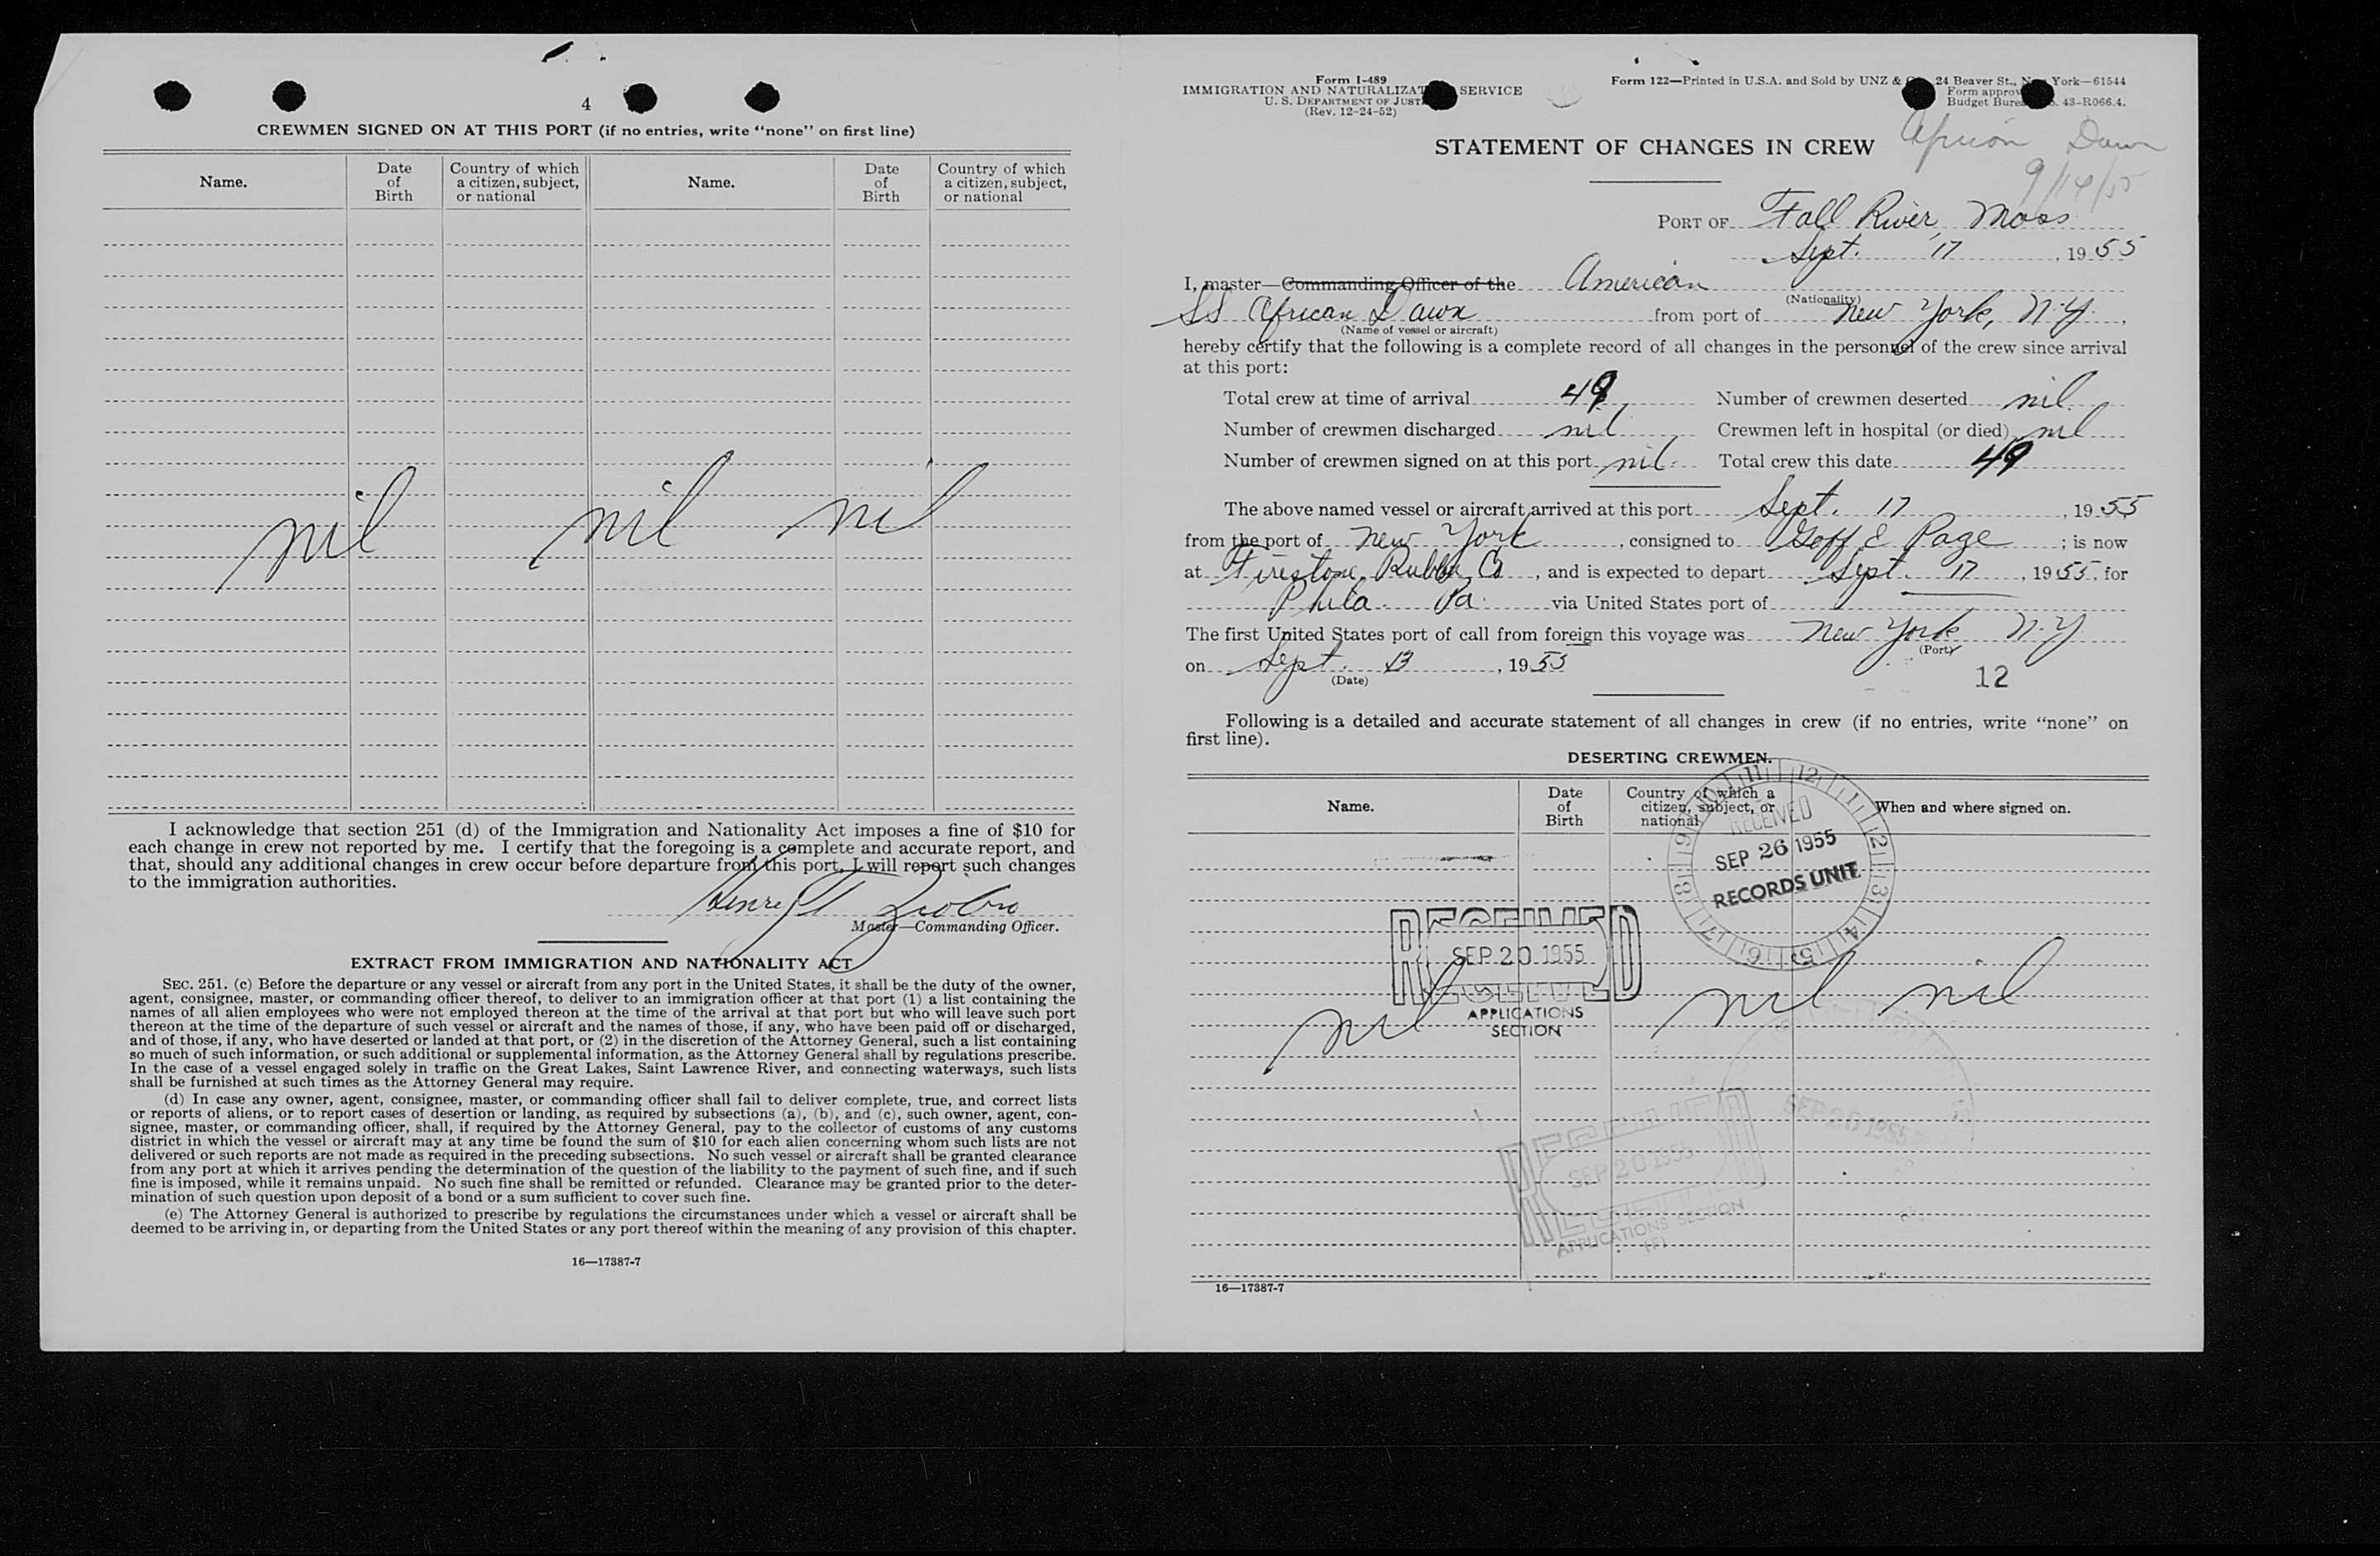 4
CREWMEN SIGNED ON AT THIS PORT (if no entries, write "none" on first line)
Name. Date of Birth Country of which a citizen, subject, or national Name. Date of Birth Country of which a citizen, subject, or national
nil nil nil
I acknowledge that section 251 (d) of the Immigration and Nationality Act imposes a fine of $10 for
each change in crew not reported by me. I certify that the foregoing is a complete and accurate report, and
that, should any additional changes in crew occur before departure from this port, I will report such changes
to the immigration authorities.
Master—Commanding Officer.
EXTRACT FROM IMMIGRATION AND NATIONALITY ACT
SEC. 251. (c) Before the departure or any vessel or aircraft from any port in the United States, it shall be the duty of the owner,
agent, consignee, master, or commanding officer thereof, to deliver to an immigration officer at that port (1) a list containing the
names of all alien employees who were not employed thereon at the time of the arrival at that port but who will leave such port
thereon at the time of the departure of such vessel or aircraft and the names of those, if any, who have been paid off or discharged,
and of those, if any, who have deserted or landed at that port, or (2) in the discretion of the Attorney General, such a list containing
so much of such information, or such additional or supplemental information, as the Attorney General shall by regulations prescribe.
In the case of a vessel engaged solely in traffic on the Great Lakes, Saint Lawrence River, and connecting waterways, such lists
shall be furnished at such times as the Attorney General may require.
(d) In case any owner, agent, consignee, master, or commanding officer shall fail to deliver complete, true, and correct lists
or reports of aliens, or to report cases of desertion or landing, as required by subsections (a), (b), and (c), such owner, agent, con-
signee, master, or commanding officer, shall, if required by the Attorney General, pay to the collector of customs of any customs
district in which the vessel or aircraft may at any time be found the sum of $10 for each alien concerning whom such lists are not
delivered or such reports are not made as required in the preceding subsections. No such vessel or aircraft shall be granted clearance
from any port at which it arrives pending the determination of the question of the liability to the payment of such fine, and if such
fine is imposed, while it remains unpaid. No such fine shall be remitted or refunded. Clearance may be granted prior to the deter-
mination of such question upon deposit of a bond or a sum sufficient to cover such fine.
(e) The Attorney General is authorized to prescribe by regulations the circumstances under which a vessel or aircraft shall be
deemed to be arriving in, or departing from the United States or any port thereof within the meaning of any provision of this chapter.
16—17387-7
Form I-489
IMMIGRATION AND NATURALIZAT SERVICE
U. S. DEPARTMENT OF JUST
(Rev. 12-24-52)
Form 122—Printed in U.S.A. and Sold by UNZ & 24 Beaver St., York—61544
Form approv
Budget Bure 43-R066.4.
STATEMENT OF CHANGES IN CREW
African Dawn
9/14/55
PORT OF Fall River, Mass
Sept. 17, 1955
I, master—Commanding Officer of the American
(Nationality)
SS African Dawn from port of New York, N.Y.,
(Name of vessel or aircraft)
hereby certify that the following is a complete record of all changes in the personnel of the crew since arrival
at this port:
Total crew at time of arrival 49 Number of crewmen deserted nil
Number of crewmen discharged nil Crewmen left in hospital (or died) nil
Number of crewmen signed on at this port nil Total crew this date 49
The above named vessel or aircraft arrived at this port Sept. 17, 1955
from the port of New York, consigned to Goff & Page; is now
at Firestone Rubber Co, and is expected to depart Sept. 17, 1955, for
Phila. Pa. via United States port of
The first United States port of call from foreign this voyage was New York N.Y.
(Port)
on Sept. 13, 1955
(Date)
12
Following is a detailed and accurate statement of all changes in crew (if no entries, write "none" on
first line).
DESERTING CREWMEN.
Name. Date of Birth Country of which a citizen, subject, or national When and where signed on.
RECEIVED
SEP 26 1955
RECORDS UNIT
RECEIVED
SEP 20 1955
APPLICATIONS
SECTION
nil nil nil
RECEIVED
SEP 20 1955
APPLICATIONS SECTION
SEP 20 1955
16—17387-7